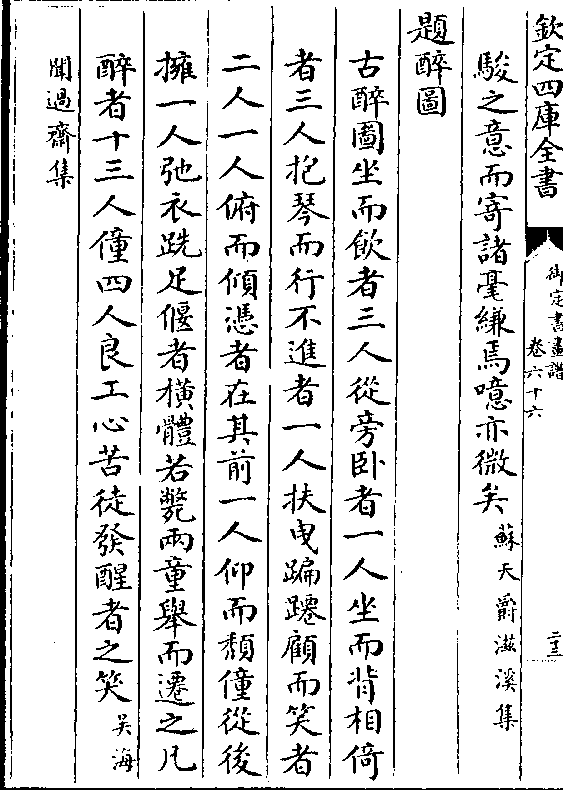 欽定四庫全書
御定書畫譜
卷六十六
二十三
駿之意而寄諸毫縑焉噫亦微矣蘇天爵滋溪集
題醉圖
古醉圖坐而飲者三人從旁卧者一人坐而背相倚
者三人抱琴而行不進者一人扶曳蹁躚顧而笑者
二人一人俯而傾憑者在其前一人仰而頽僮從後
擁一人弛衣跣足偃者橫體若斃兩童舉而遷之凡
醉者十三人僮四人良工心苦徒發醒者之笑吳海
聞過齋集